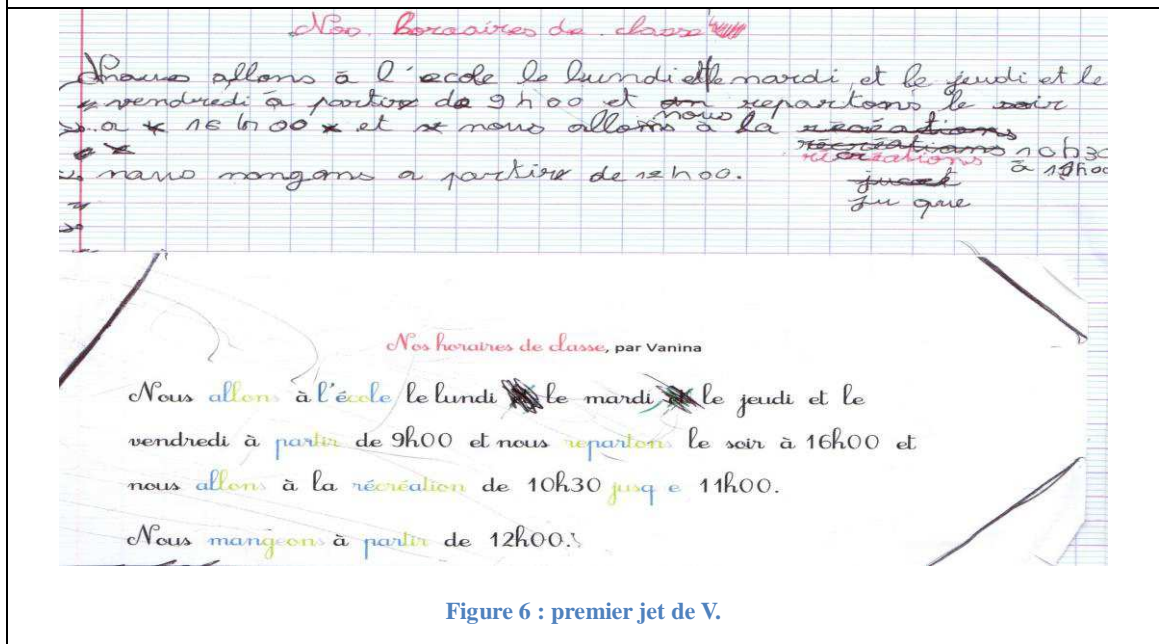 Nos. horaaires de classe
nous allons à l'ecole le lundi et le mardi, et le jeudi et le
vendredi à partire de 9h00 et on repartons le soir
nous
a 16h00 et nous allons à la récéations
récréations 10h30
récréations à 11h00
nano mangons a partire de 12h00. jucet
ju que
Nos horaires de classe, par Vanina
Nous allons à l'école le lundi et le mardi et le jeudi et le
vendredi à partir de 9h00 et nous repartons le soir à 16h00 et
nous allons à la récréation de 10h30 jusq e 11h00.
Nous mangeons à partir de 12h00.
Figure 6 : premier jet de V.